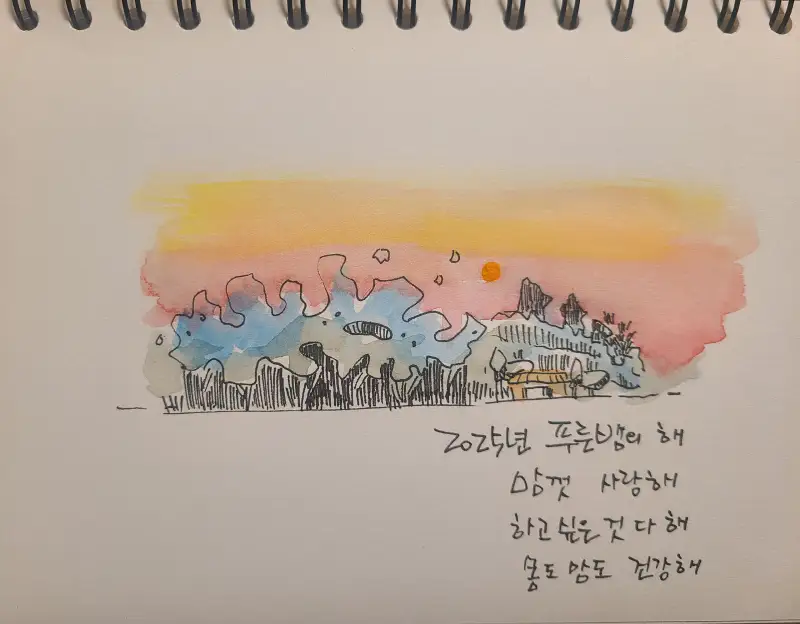 2025년 푸른뱀의 해
맘껏 사랑해
하고 싶은 것 다 해
몸도 맘도 건강해